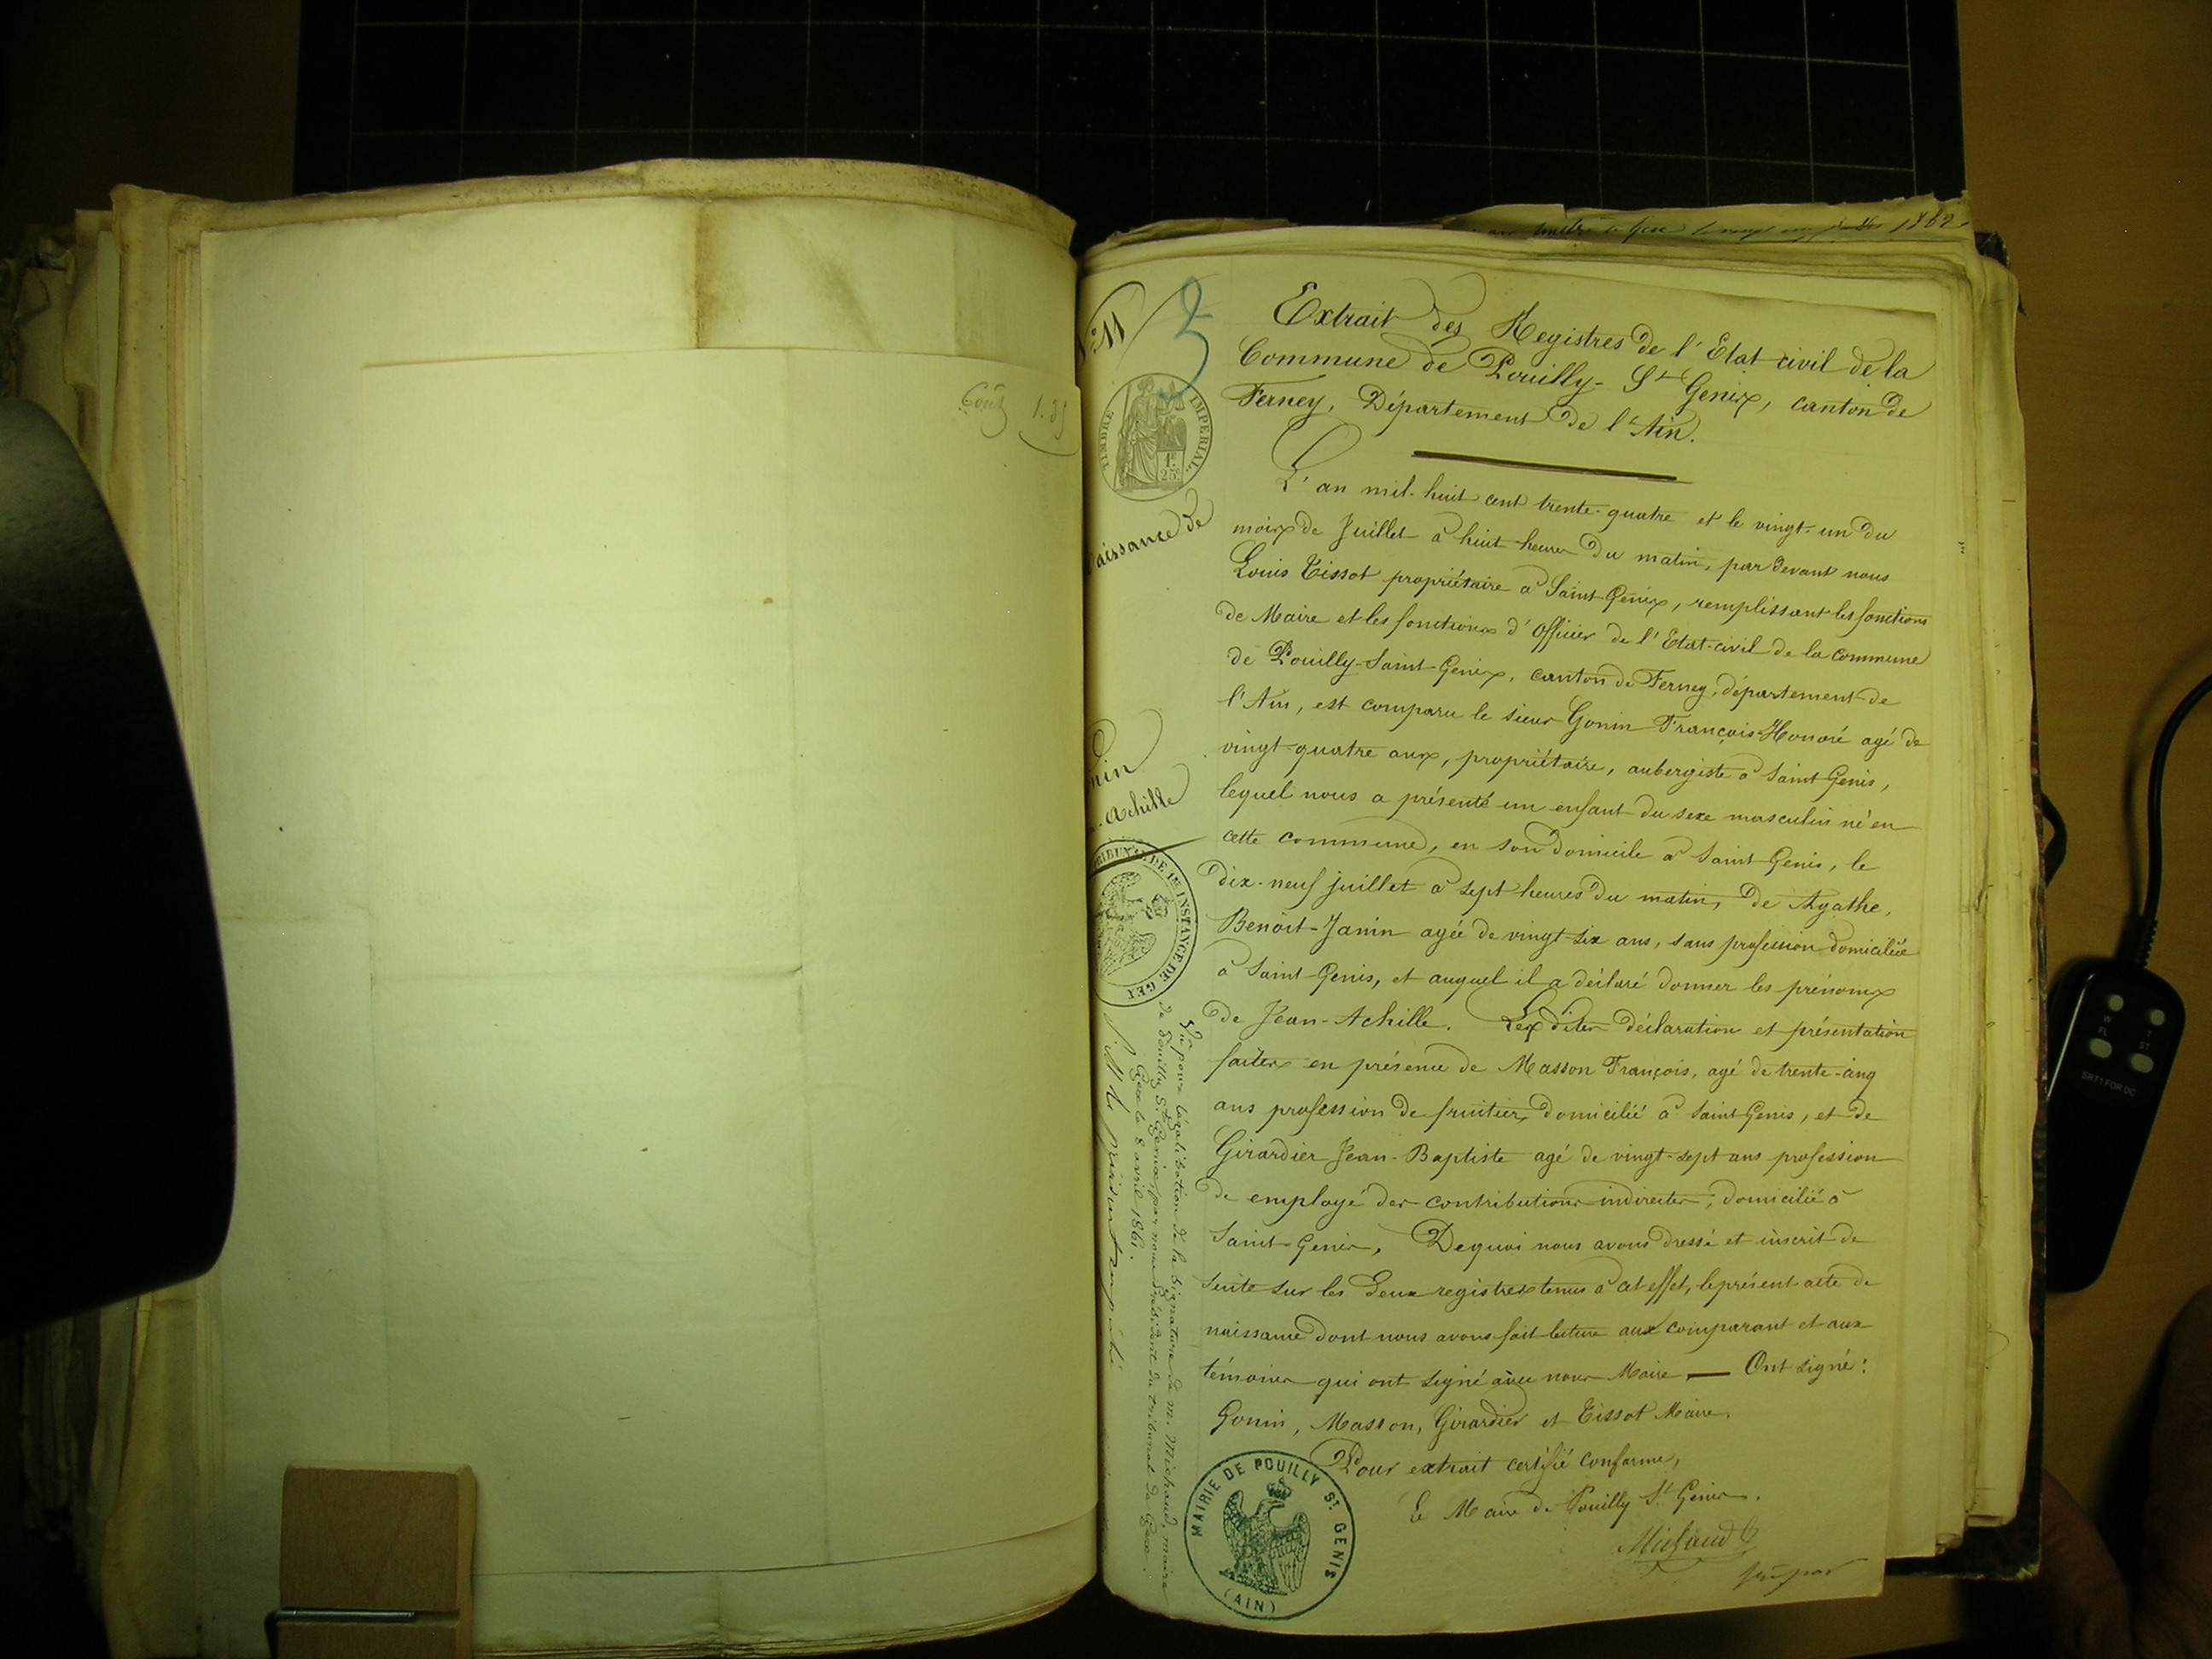 Coût 1.25
1862
N° 11
TIMBRE IMPERIAL
1f 25c
Naissance de
nin
Achille
TRIBUNAL DE 1re INSTANCE DE GEX
Vu pour légalisation de la signature de m. Michaud, maire
de Pouilly St Genix, par nous Président du tribunal de Gex.
Gex le 8 avril 1861.
Extrait des Registres de l'Etat civil de la
Commune de Pouilly-St Genix, canton de
Ferney, Département de l'Ain.
L'an mil-huit cent trente-quatre et le vingt-un du
mois de Juillet à huit heures du matin, par devant nous
Louis Tissot propriétaire à Saint-Genix, remplissant les fonctions
de Maire et les fonctions d'Officier de l'Etat-civil de la commune
de Pouilly-Saint-Genix, canton de Ferney, département de
l'Ain, est comparu le sieur Gonin François-Honoré agé de
vingt-quatre ans, propriétaire, aubergiste à Saint Genis,
lequel nous a présenté un enfant du sexe masculin né en
cette commune, en son domicile à Saint-Genis, le
dix-neuf juillet à sept heures du matin, de Agathe,
Benoit-Janin agée de vingt-six ans, sans profession domiciliée
à Saint-Genis, et auquel il a déclaré donner les prénoms
de Jean-Achille. Les dites déclaration et présentation
faites en présence de Masson François, agé de trente-cinq
ans profession de fruitier, domicilié à Saint-Genis, et de
Girardier Jean-Baptiste agé de vingt-sept ans profession
de employé des contributions indirectes, domicilié à
Saint-Genis. Dequoi nous avons dressé et inscrit de
suite sur les deux registres tenus à cet effet, le présent acte de
naissance dont nous avons fait lecture aux comparant et aux
témoins qui ont signé avec nous Maire. — Ont signé:
Gonin, Masson, Girardier et Tissot Maire.
Pour extrait certifié conforme,
Le Maire de Pouilly St Genis.
Michaud
MAIRIE DE POUILLY ST. GENIS
(AIN)
SRT1 FOR DC